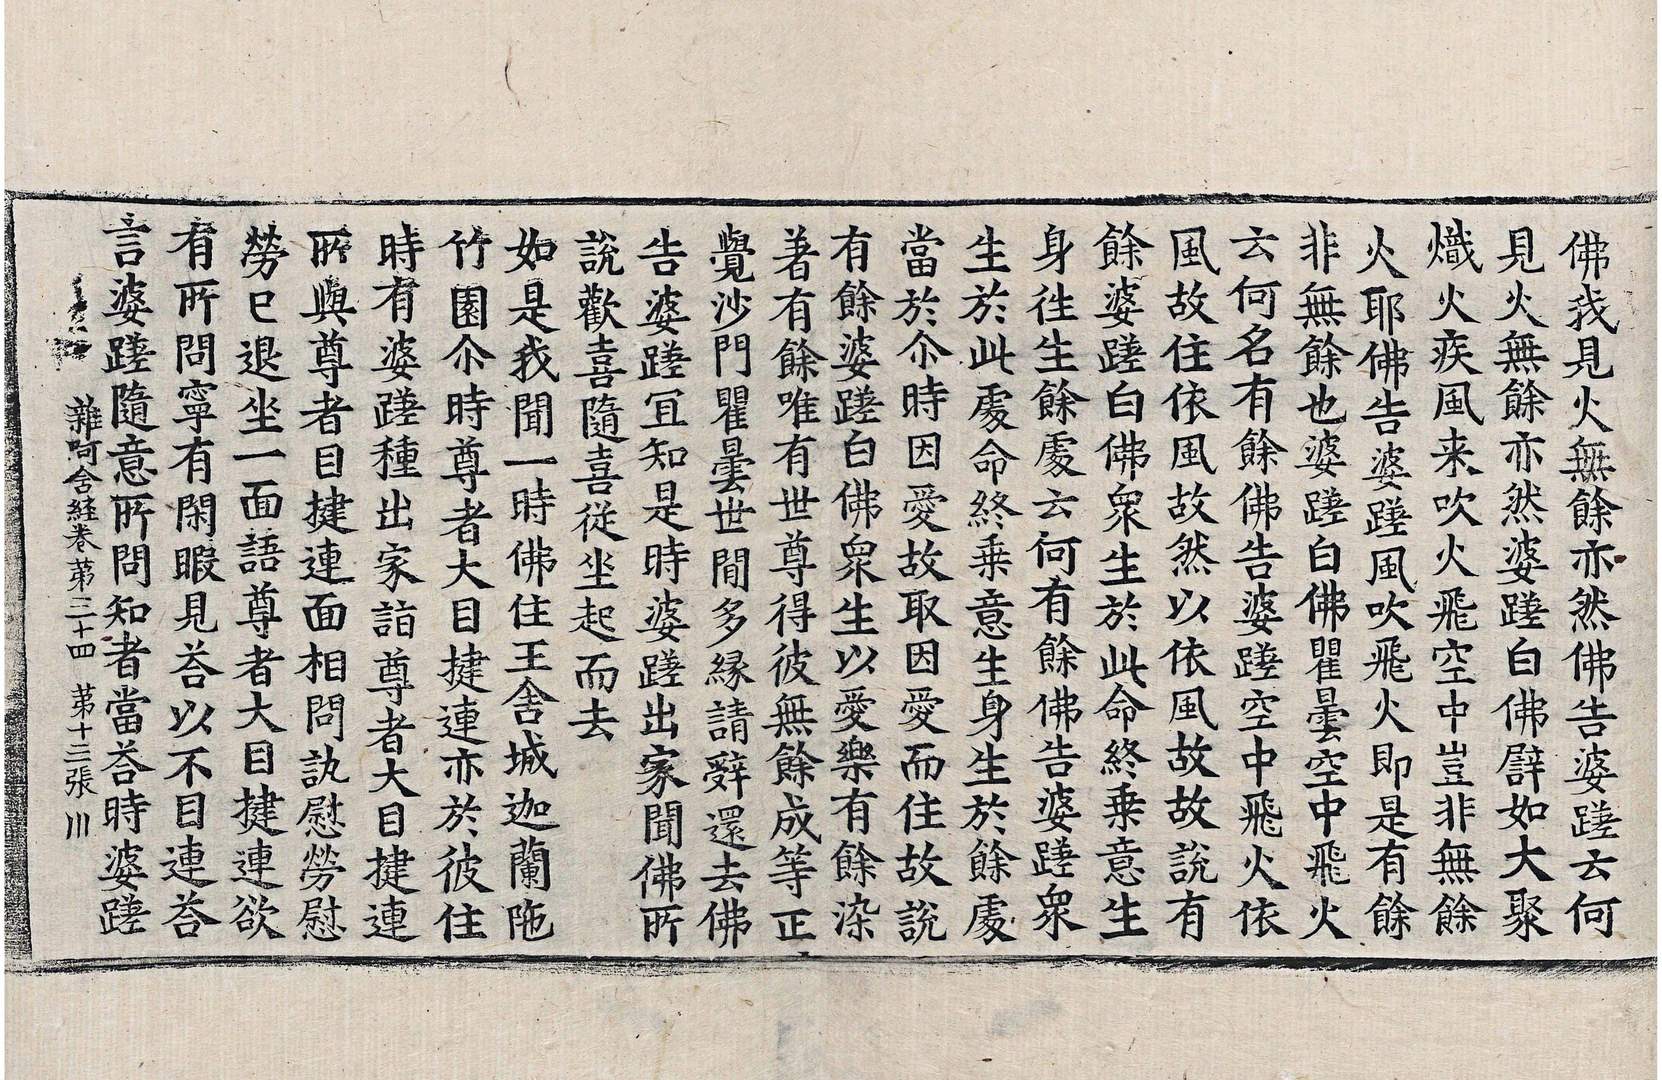 佛我見火無餘亦然佛告婆蹉云何
見火無餘亦然婆蹉白佛譬如大聚
熾火疾風来吹火飛空中豈非無餘
火耶佛告婆蹉風吹飛火即是有餘
非無餘也婆蹉白佛瞿曇空中飛火
云何名有餘佛告婆蹉空中飛火依
風故住依風故然以依風故故說有
餘婆蹉白佛衆生於此命終乗意生
身徃生餘處云何有餘佛告婆蹉衆
生於此處命終乗意生身生於餘處
當於尒時因愛故取因愛而住故說
有餘婆蹉白佛衆生以愛樂有餘染
著有餘唯有世尊得彼無餘成等正
覺沙門瞿曇世間多縁請辤還去佛
告婆蹉冝知是時婆蹉出家聞佛所
說歡喜隨喜從坐起而去
如是我聞一時佛住王舍城迦蘭陁
竹園尒時尊者大目揵連亦於彼住
時有婆蹉種出家詣尊者大目揵連
所與尊者目揵連面相問訊慰勞慰
勞已退坐一面語尊者大目揵連欲
有所問寧有閑暇見荅以不目連荅
言婆蹉隨意所問知者當荅時婆蹉
雜阿含経卷苐三十四 苐十三張 川